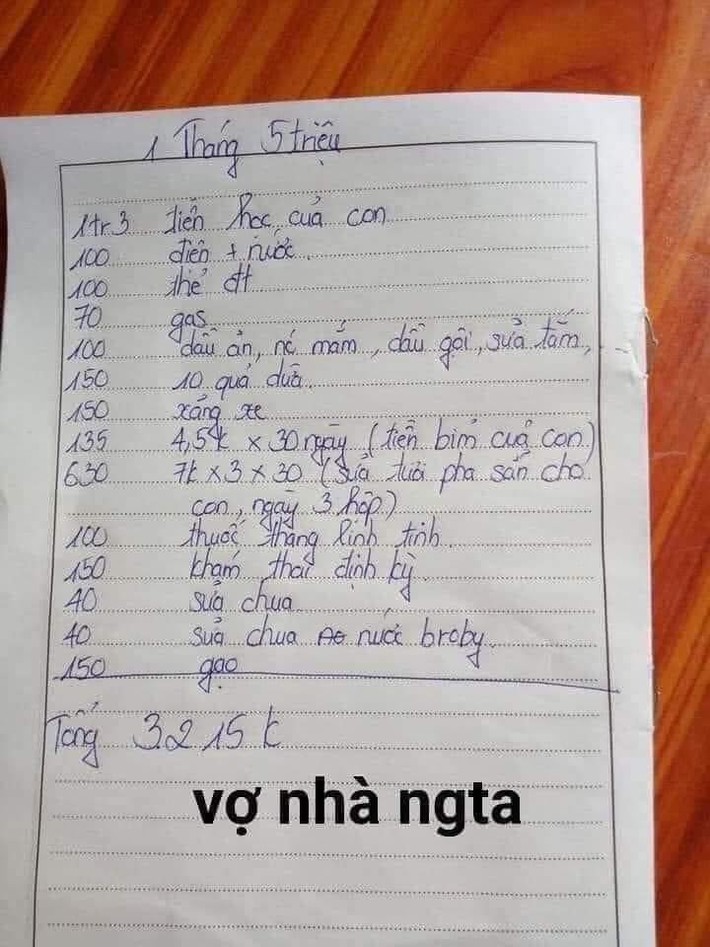 1 Tháng 5 triệu
1tr3 tiền học của con
100 điện + nước
100 thẻ đt
70 gas
100 dầu ăn, nc mắm, dầu gội, sữa tắm,
150 10 quả dừa
150 xăng xe
135 4,5k x 30 ngày (tiền bỉm của con)
630 7k x 3 x 30 (sữa tươi pha sẵn cho
con, ngày 3 hộp)
100 thuốc thang linh tinh
150 khám thai định kỳ
40 sữa chua
40 sữa chua nước broby
150 gạo
Tổng 3215k
vợ nhà ngta